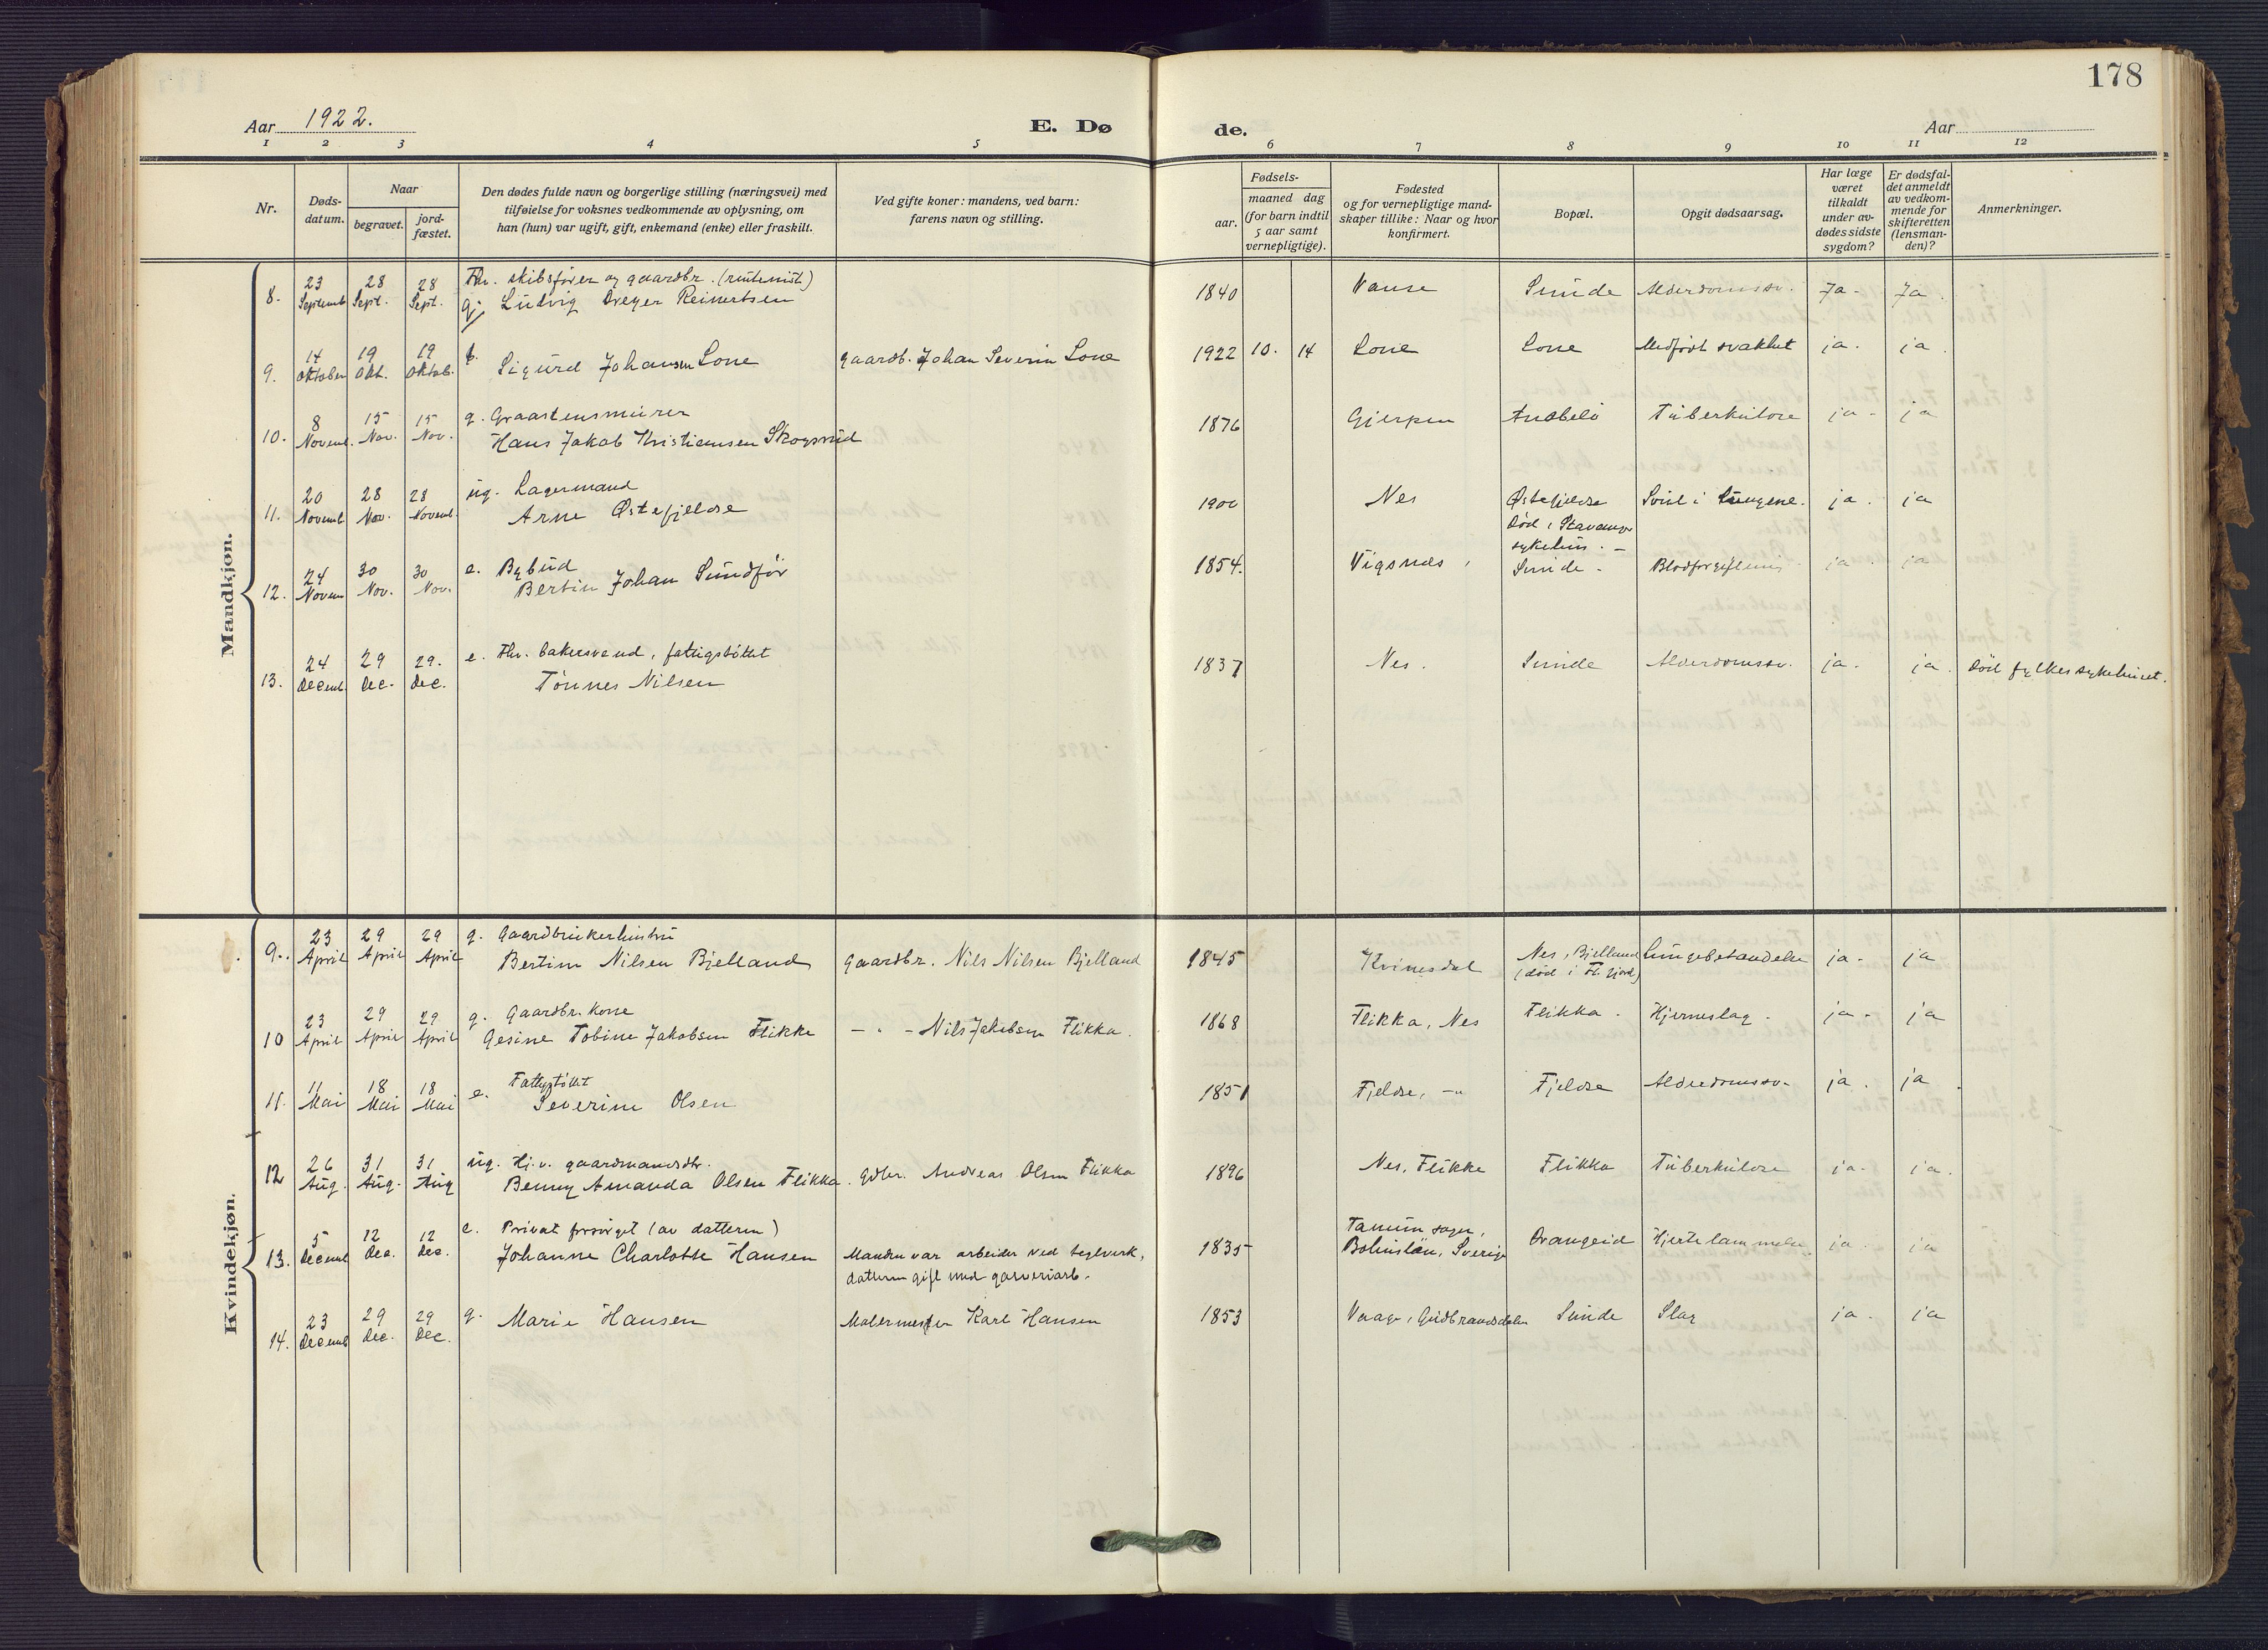 178
Aar 1922. E. Dø de. Aar
1 2 3 4 5 6 7 8 9 10 11 12
Nr.
Døds-
datum.
Naar
begravet.
jord-
fæstet.
Den dødes fulde navn og borgerlige stilling (næringsvei) med
tilføielse for voksnes vedkommende av oplysning, om
han (hun) var ugift, gift, enkemand (enke) eller fraskilt.
Ved gifte koner: mandens, ved barn:
farens navn og stilling.
Fødsels-
aar.
maaned dag
(for barn indtil
5 aar samt
vernepligtige).
Fødested
og for vernepligtige mand-
skaper tillike: Naar og hvor
konfirmert.
Bopæl.
Opgit dødsaarsag.
Har læge
været
tilkaldt
under av-
dødes sidste
sygdom?
Er dødsfal-
det anmeldt
av vedkom-
mende for
skifteretten
(lensman-
den)?
Anmerkninger.
Mandkjøn.
8. 23 Septemb. 28 Sept. 28 Sept. Fhv. skibsfører og gaardbr. (rutemist)
g. Ludvig Dreyer Reinertsen 1840 Vanse Sunde Alderdomssv. Ja. Ja.
9. 14 Oktober 19 Okt. 19 Oktob. b. Sigurd Johansen Lone gaardb. Johan Severin Lone 1922 10. 14 Lone Lone Medfødt svakhet ja. ja.
10. 8 Novemb. 15 Nov. 15 Nov. g. Graastensmurer
Hans Jakob Kristiansen Skogsrud 1876 Gjerpen Anabelø Tuberkulose ja. ja
11. 20 Novemb. 28 Nov. 28 Novemb. ug. Lagermand
Arne Østefjeldse 1900 Nes Østefjeldse
død i Stavanger
sykehus. - Svul i Lungene. ja. ja
12. 24 Novem 30 Nov. 30 Nov. e. Bybud
Bertin Johan Sundfør 1854. Vigsnes Sunde - Blodforgiftning ja. ja
13. 24 Decemb. 29 Dec. 29. Dec. e. Fhv. bakersvend, fattigstøttet
Tønnes Nilsen 1837 Nes. Sunde Alderdomssv. ja. ja. død fylkessykehuset.
Kvindekjøn.
9. 23 April 29 April 29 April g. Gaardbrukerhustru
Bertine Nilsen Bjelland gaardbr. Nils Nilsen Bjelland 1845 Kvinesdal Nes, Bjelland
(død i Fl. fjord) Lungebetændelse ja. ja
10 23 April 29 April 29 April g. Gaardbr. kone
Gesine Tobine Jakobsen Flikke - " - Nils Jakobsen Flikka. 1868 Flikka, Nes Flikka. Hjerneslag. ja. ja
11. 11 Mai 18 Mai 18 Mai e. Fattigstøttet
Severine Olsen 1851 Fjeldse, -" Fjeldse Alderdomssv. ja. ja.
12 26 Aug. 31 Aug. 31 Aug ug. Hj.v. gaardmandsdtr.
Benny Amanda Olsen Flikka. Gdbr. Andreas Olsen Flikka 1896 Nes, Flikke Flikka Tuberkulose ja. ja.
13. 5 Decemb 12 Dec. 12 Dec. e. Privat forsørget (av datteren)
Johanne Charlotte Hansen Manden var arbeider ved teglverk,
datteren gift med garveriarb. 1835 Tanum sogn,
Bohuslän, Sverige Drangeid Hjertelammelse. ja. ja
14. 23 Decemb 29 Dec. 29 Dec. g. Marie Hansen Malermester Karl Hansen 1853 Vaage, Gudbrandsdalen Sunde Slag ja. ja